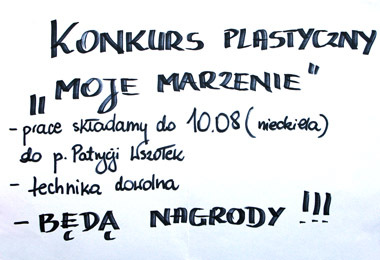 KONKURS PLASTYCZNY
„MOJE MARZENIE"
- prace składamy do 10.08 (niedziela)
do p. Patrycji Wszołek
- technika dowolna
- BĘDĄ NAGRODY !!!